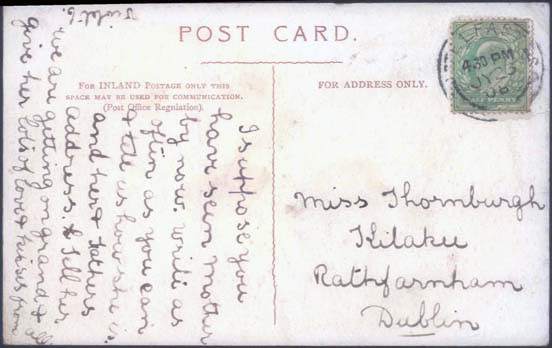 POST CARD.
FOR INLAND POSTAGE ONLY THIS
SPACE MAY BE USED FOR COMMUNICATION.
(Post Office Regulation).
FOR ADDRESS ONLY.
I suppose you
have seen Mother
by now. Write as
often as you can
& tell us how she is
and her & Fathers
address. & tell her
we are getting on grand & all
give her lots of love & kisses from
Violet
Miss Thornburgh
Kilaku
Rathfarnham
Dublin
BELFAST
4.30 PM
JY 23